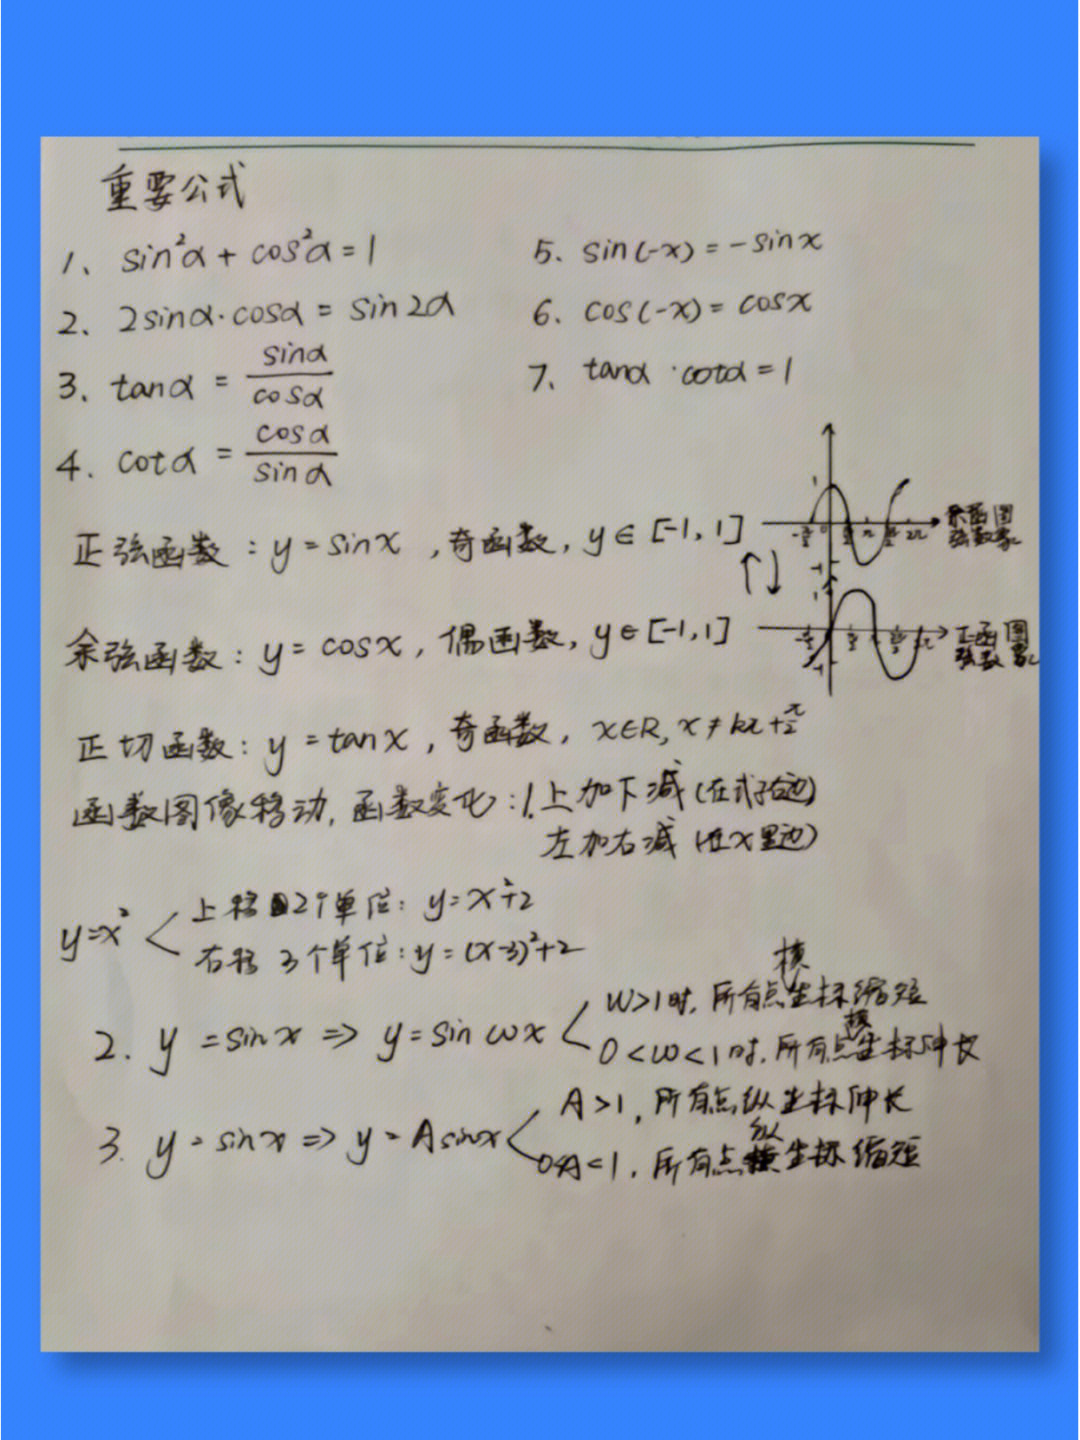 重要公式
1、sin²α + cos²α = 1
2、2sinα·cosα = sin2α
3、tanα = sinα/cosα
4. cotα = cosα/sinα
5、sin(-x) = -sinx
6. cos(-x) = cosx
7、tanα·cotα = 1
正弦函数：y = sinx，奇函数，y∈[-1，1]
余弦函数：y = cosx，偶函数，y∈[-1，1]
正切函数：y = tanx，奇函数，x∈R, x≠kπ+π/2
余弦函数图象
1
-π/2 0 π/2 π 3π/2 2π
-1
↑↓
正弦函数图象
1
-π/2 π/2 π 3π/2 2π
-1
函数图像移动，函数变化：1.上加下减（在式子右边）
左加右减（在x里边）
y=x²
上移2个单位：y=x²+2
右移3个单位：y=(x-3)²+2
2. y = sinx ⇒ y = sin ωx
W>1时，所有点横坐标缩短
0<ω<1时，所有点横坐标伸长
3. y = sinx ⇒ y = Asinx
A>1，所有点纵坐标伸长
0<A<1，所有点纵坐标缩短